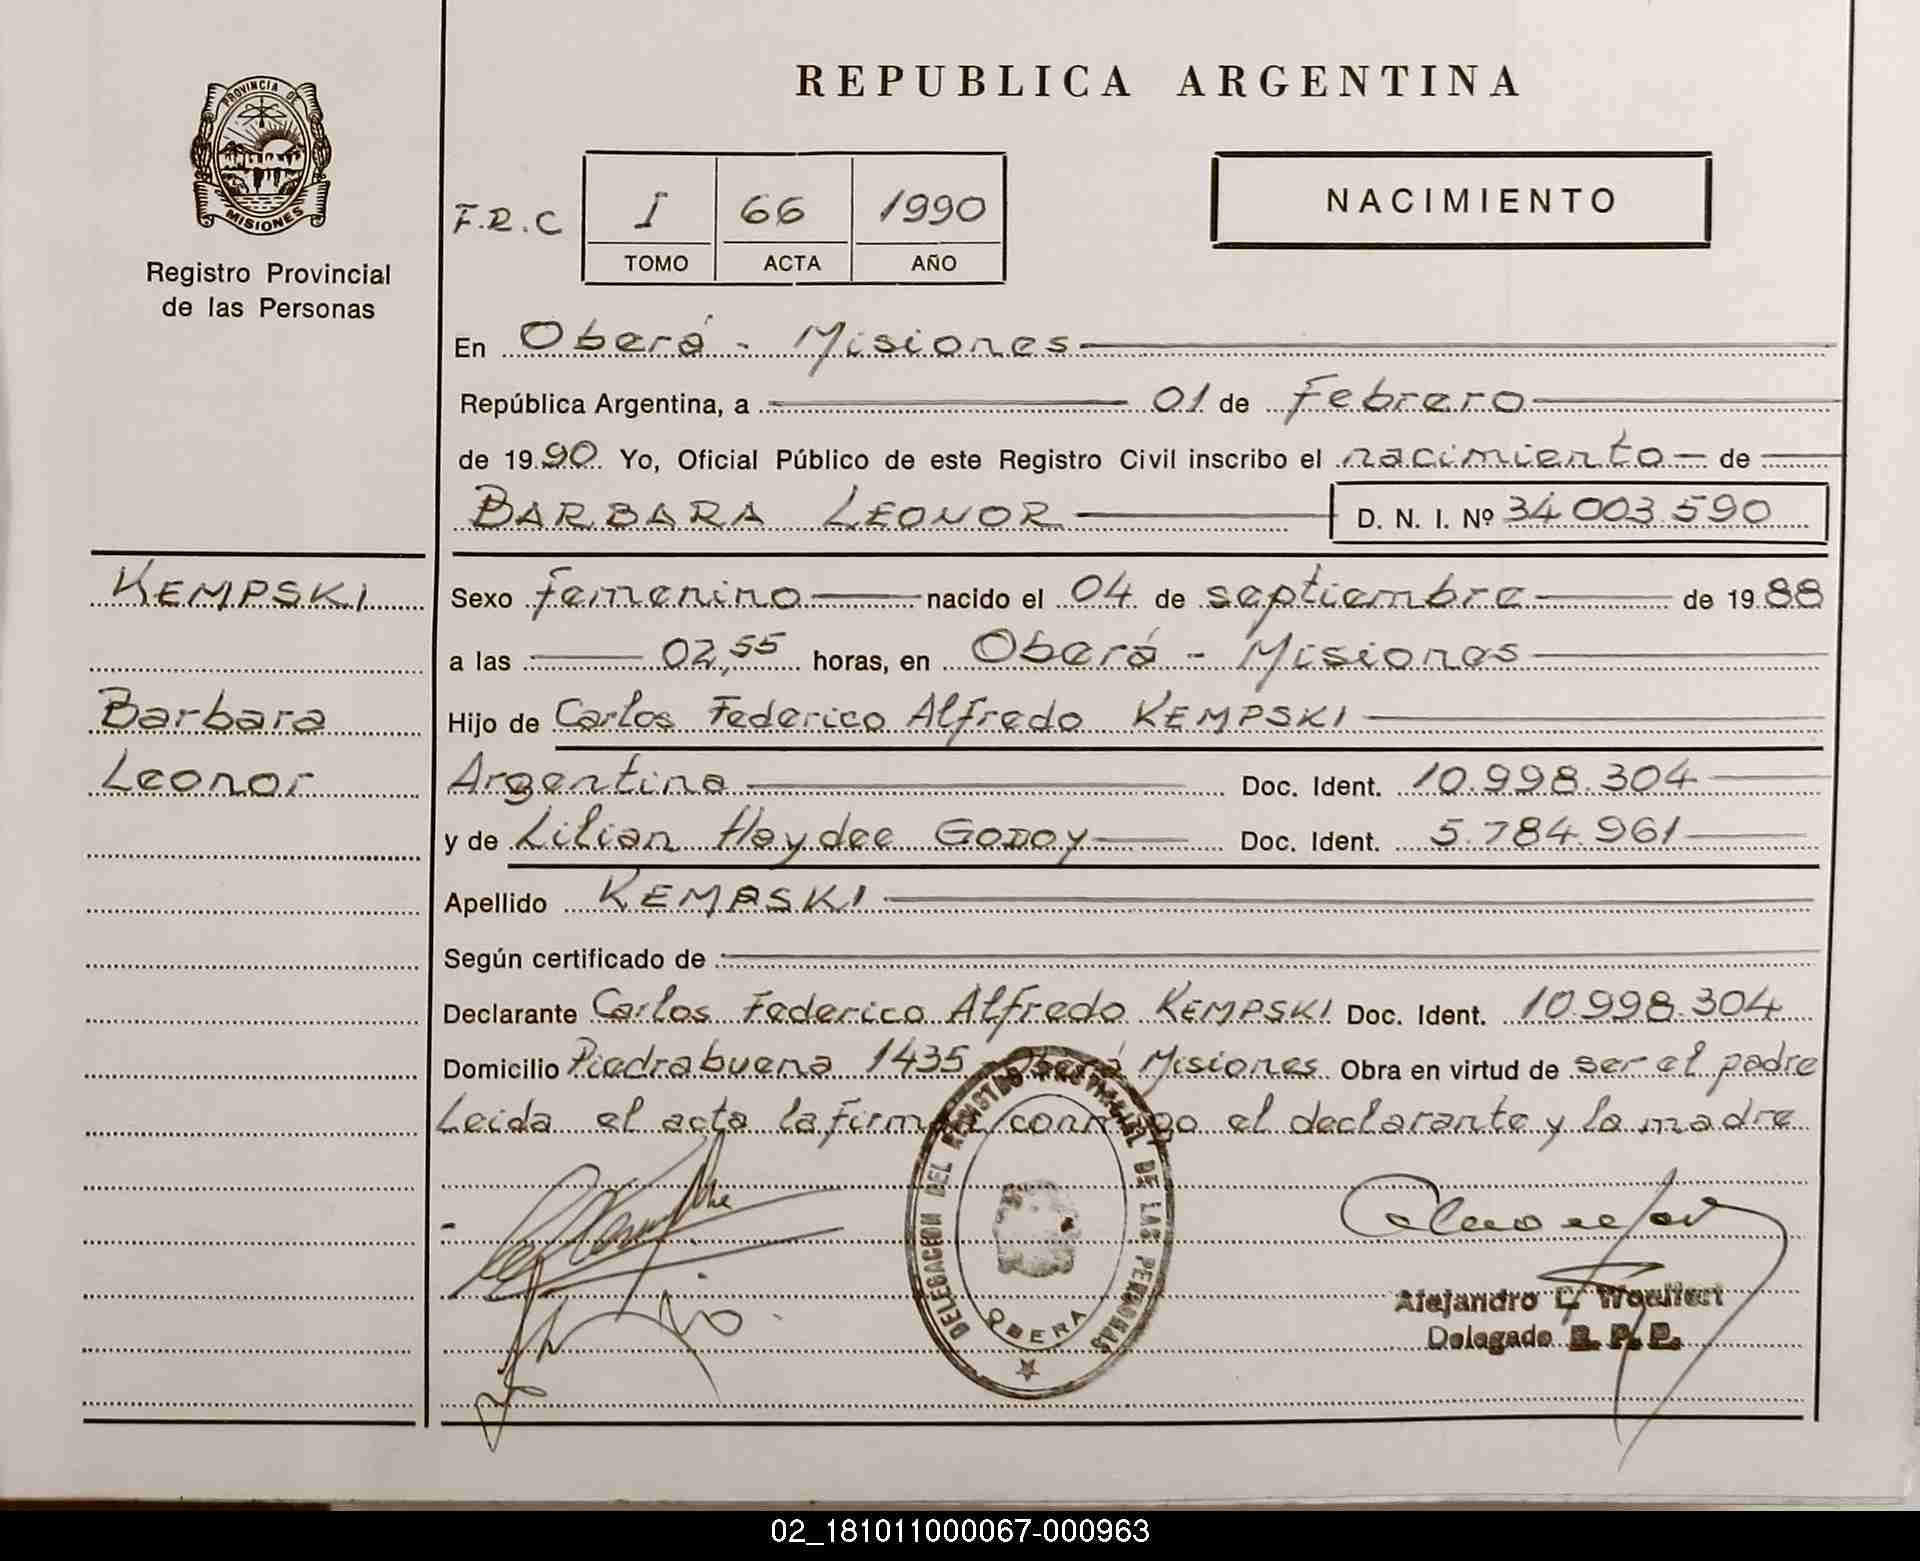 PROVINCIA DE
MISIONES
Registro Provincial
de las Personas
REPUBLICA ARGENTINA
F.R.C I 66 1990
TOMO ACTA AÑO
NACIMIENTO
En Oberá - Misiones
República Argentina, a 01 de Febrero
de 1990 Yo, Oficial Público de este Registro Civil inscribo el nacimiento de
BARBARA LEONOR D. N. I. Nº 34 003 590
KEMPSKI
Barbara
Leonor
Sexo femenino nacido el 04 de septiembre de 1988
a las 02,55 horas, en Oberá - Misiones
Hijo de Carlos Federico Alfredo KEMPSKI
Argentina Doc. Ident. 10.998.304
y de Lilian Haydee GODOY Doc. Ident. 5.784.961
Apellido KEMPSKI
Según certificado de
Declarante Carlos Federico Alfredo KEMPSKI Doc. Ident. 10.998.304
Domicilio Piedrabuena 1435 - Oberá Misiones Obra en virtud de ser el padre
Leida el acta la firman conmigo el declarante y la madre
DELEGACION DEL REGISTRO PROVINCIAL DE LAS PERSONAS
OBERA
Alejandro
Delegado R. P. P.
02_181011000067-000963